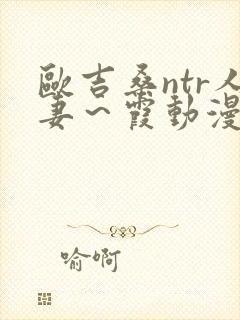 歐吉桑ntr人
妻～霞動漫
喻啊